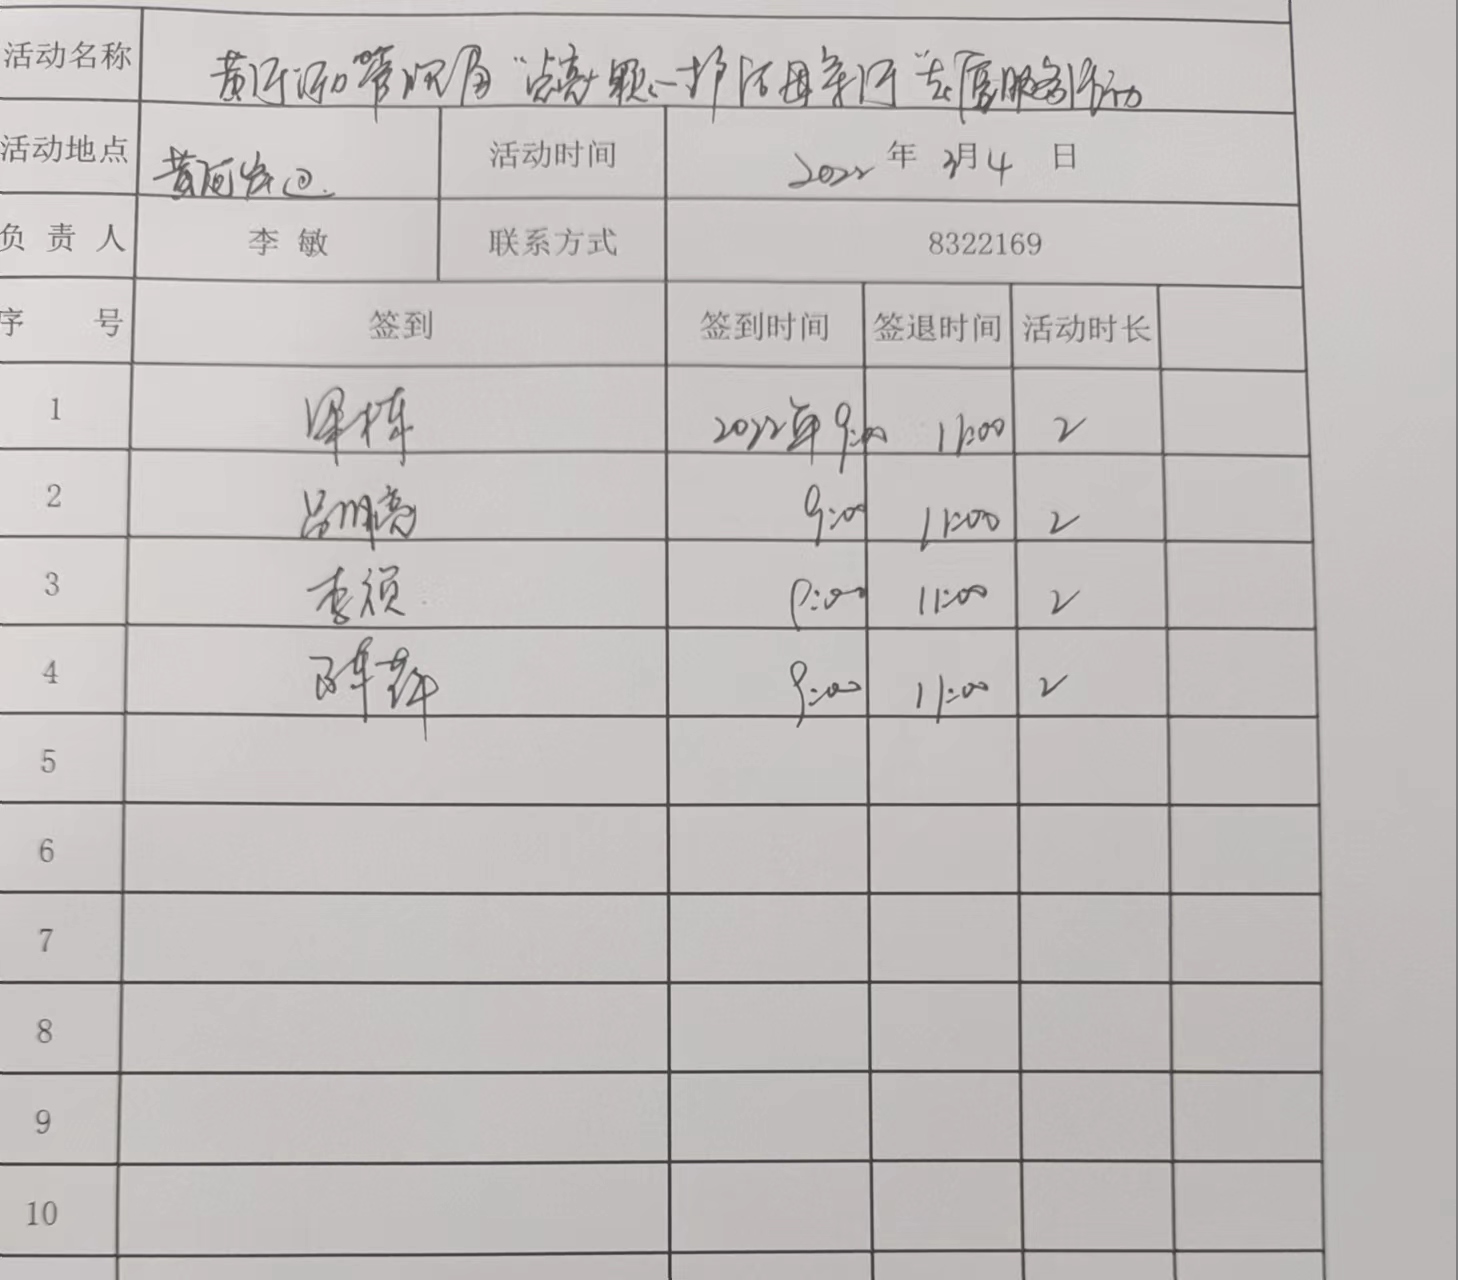 活动名称 黄河河务管理局"点亮 颗心 护佑母亲河"志愿服务活动
活动地点 黄河岸边 活动时间 2022年3月4日
负责人 李敏 联系方式 8322169
序号 签到 签到时间 签退时间 活动时长
1 栋 2022年9:00 11:00 2
2 吕明亮 9:00 11:00 2
3 李颀 9:00 11:00 2
4 9:00 11:00 2
5
6
7
8
9
10